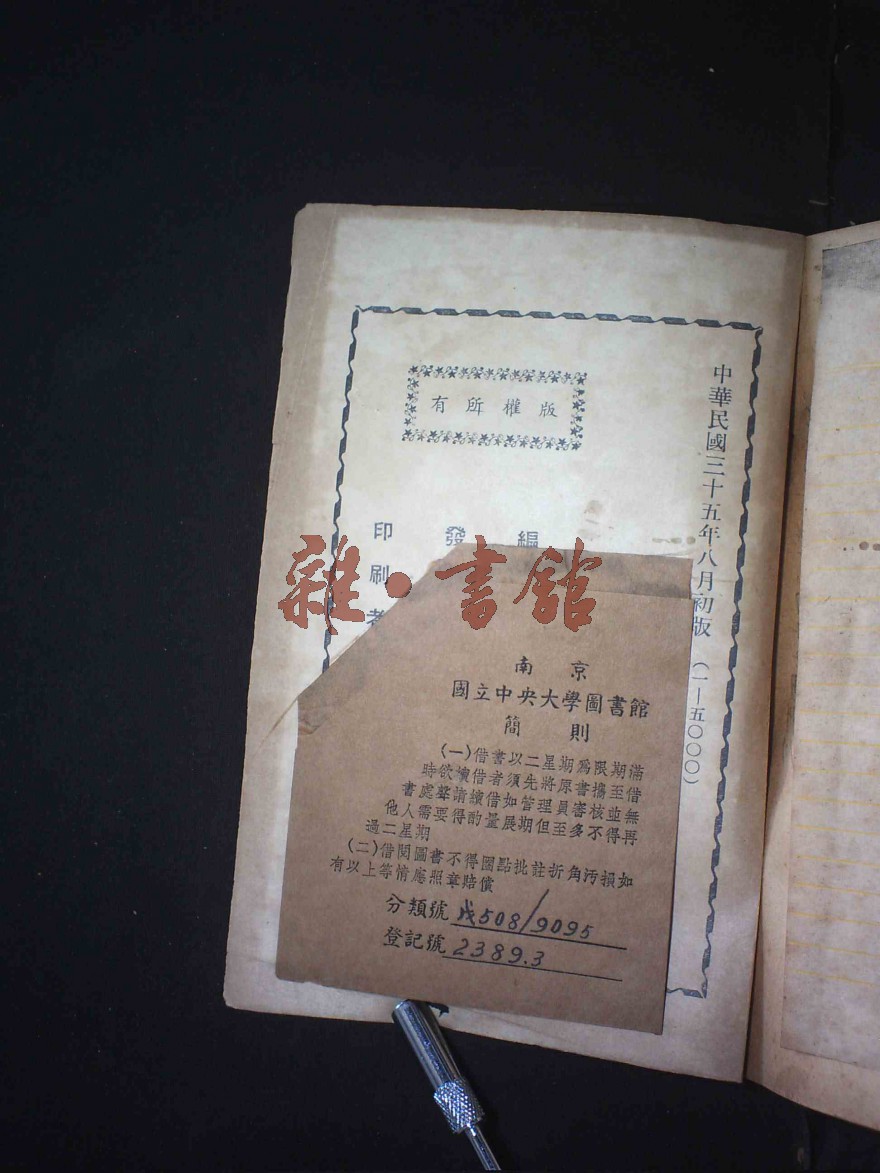 中華民國三十五年八月初版（一—五〇〇〇）
有所權版
編
發
印刷者
雜·書館
南京
國立中央大學圖書館
簡則
(一)借書以二星期為限期滿
時欲續借者須先將原書攜至借
書處聲請續借如管理員審核並無
他人需要得酌量展期但至多不得再
過二星期
(二)借閱圖書不得圈點批註折角污損如
有以上等情應照章賠償
分類號 戊508/9095
登記號 2389.3